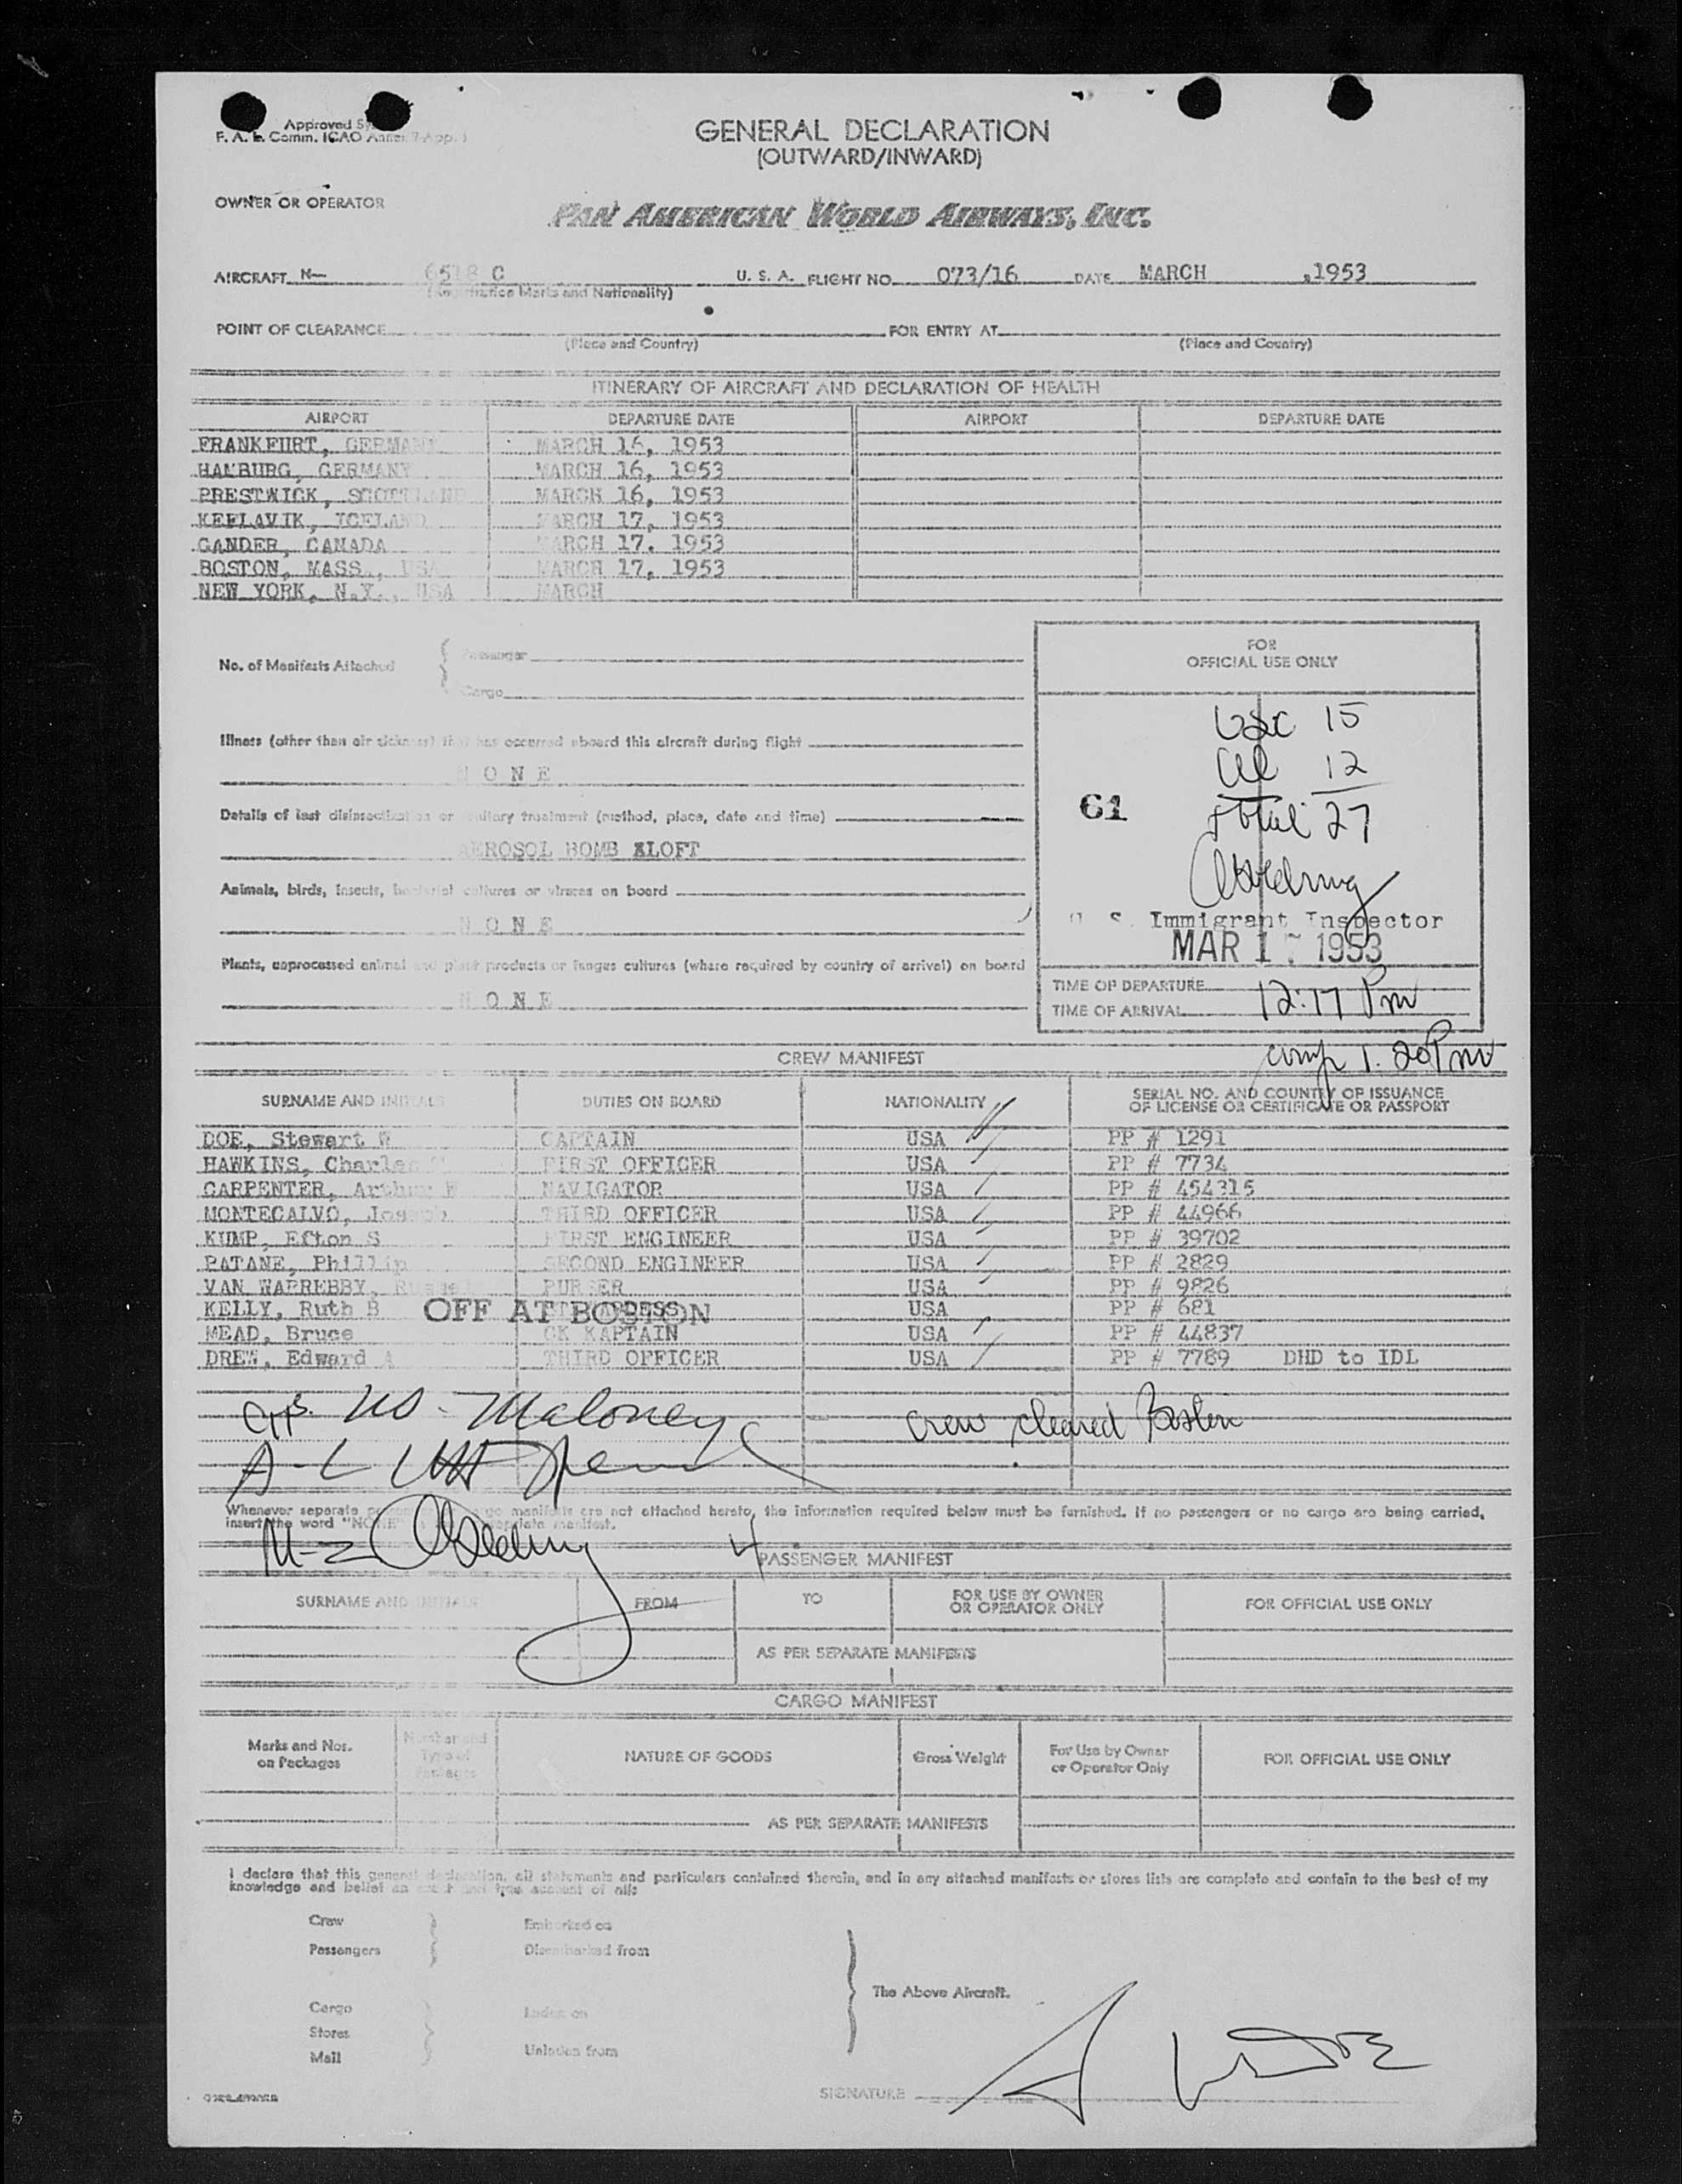 Approved
F. A. L. Comm. ICAO Annex 9-App. 1
GENERAL DECLARATION
(OUTWARD/INWARD)
OWNER OR OPERATOR
PAN AMERICAN WORLD AIRWAYS, INC.
AIRCRAFT N— 6518 C U. S. A. FLIGHT NO. 073/16 DATE MARCH ,1953
(Registration Marks and Nationality)
POINT OF CLEARANCE FOR ENTRY AT
(Place and Country) (Place and Country)
ITINERARY OF AIRCRAFT AND DECLARATION OF HEALTH
AIRPORT DEPARTURE DATE AIRPORT DEPARTURE DATE
FRANKFURT, GERMANY MARCH 16, 1953
HAMBURG, GERMANY MARCH 16, 1953
PRESTWICK, SCOTLAND MARCH 16, 1953
KEFLAVIK, ICELAND MARCH 17, 1953
GANDER, CANADA MARCH 17. 1953
BOSTON, MASS., USA MARCH 17, 1953
NEW YORK, N.Y., USA MARCH
No. of Manifests Attached
Passenger
Cargo
Illness (other than air sickness) that has occurred aboard this aircraft during flight
N O N E
Details of last disinsectization or sanitary treatment (method, place, date and time)
AEROSOL BOMB ALOFT
Animals, birds, insects, bacterial cultures or viruses on board
N O N E
Plants, unprocessed animal and plant products or fungus cultures (where required by country of arrival) on board
N O N E
FOR
OFFICIAL USE ONLY
USC 15
12
61
total 27
U. S. Immigrant Inspector
MAR 17 1953
TIME OF DEPARTURE
TIME OF ARRIVAL 12:17 Pm
comp 1.20 Pm
CREW MANIFEST
SURNAME AND INITIALS DUTIES ON BOARD NATIONALITY SERIAL NO. AND COUNTRY OF ISSUANCE
OF LICENSE OR CERTIFICATE OR PASSPORT
DOE, Stewart W CAPTAIN USA PP # 1291
HAWKINS, Charles FIRST OFFICER USA PP # 7734
CARPENTER, Arthur NAVIGATOR USA PP # 454315
MONTECALVO, Joseph THIRD OFFICER USA PP # 44966
KUMP, Efton S FIRST ENGINEER USA PP # 39702
PATANE, Phillip SECOND ENGINEER USA PP # 2829
VAN WARREBBY, PURSER USA PP # 9826
KELLY, Ruth B STEWARDESS USA PP # 681
OFF AT BOSTON
MEAD, Bruce CK KAPTAIN USA PP # 44837
DREW, Edward A THIRD OFFICER USA PP # 7789 DHD to IDL
Maloney
crew cleared Boston
A-L
Whenever separate passenger or cargo manifests are not attached hereto, the information required below must be furnished. If no passengers or no cargo are being carried,
insert the word "NONE" in the appropriate manifest.
M-2 4
PASSENGER MANIFEST
SURNAME AND INITIALS FROM TO FOR USE BY OWNER
OR OPERATOR ONLY FOR OFFICIAL USE ONLY
AS PER SEPARATE MANIFESTS
CARGO MANIFEST
Marks and Nos.
on Packages Number and
Type of
Packages NATURE OF GOODS Gross Weight For Use by Owner
or Operator Only FOR OFFICIAL USE ONLY
AS PER SEPARATE MANIFESTS
I declare that this general declaration, all statements and particulars contained therein, and in any attached manifests or stores lists are complete and contain to the best of my
knowledge and belief an exact and true account of all:
Crew Embarked on
Passengers Disembarked from
The Above Aircraft.
Cargo Laden on
Stores
Mail Unladen from
SIGNATURE